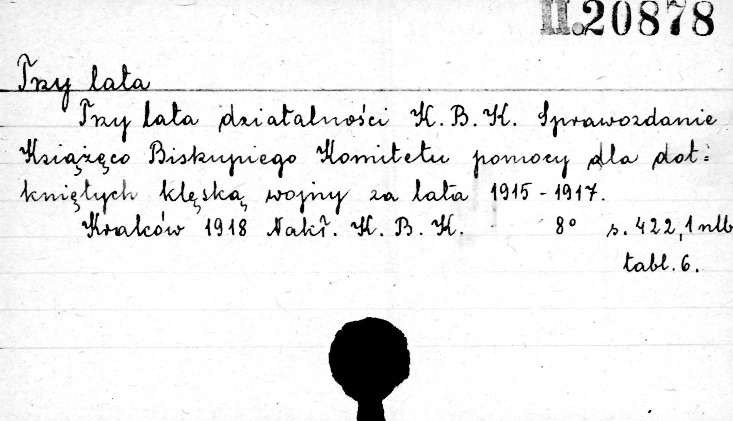 II.20878
Trzy lata
Trzy lata działalności K. B. K. Sprawozdanie
Książęco Biskupiego Komitetu pomocy dla dot-
kniętych klęską wojny za lata 1915-1917.
Kraków 1918 Nakł. K. B. K. 8° s. 422, 1 nlb
tabl. 6.